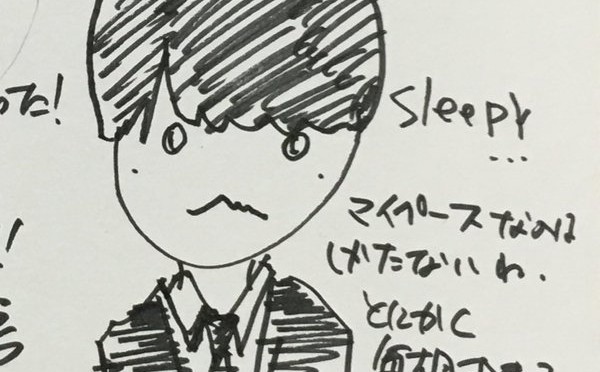 った!
Sleepy
...
マイペースなのは
しかたないわ.
とにかく
!